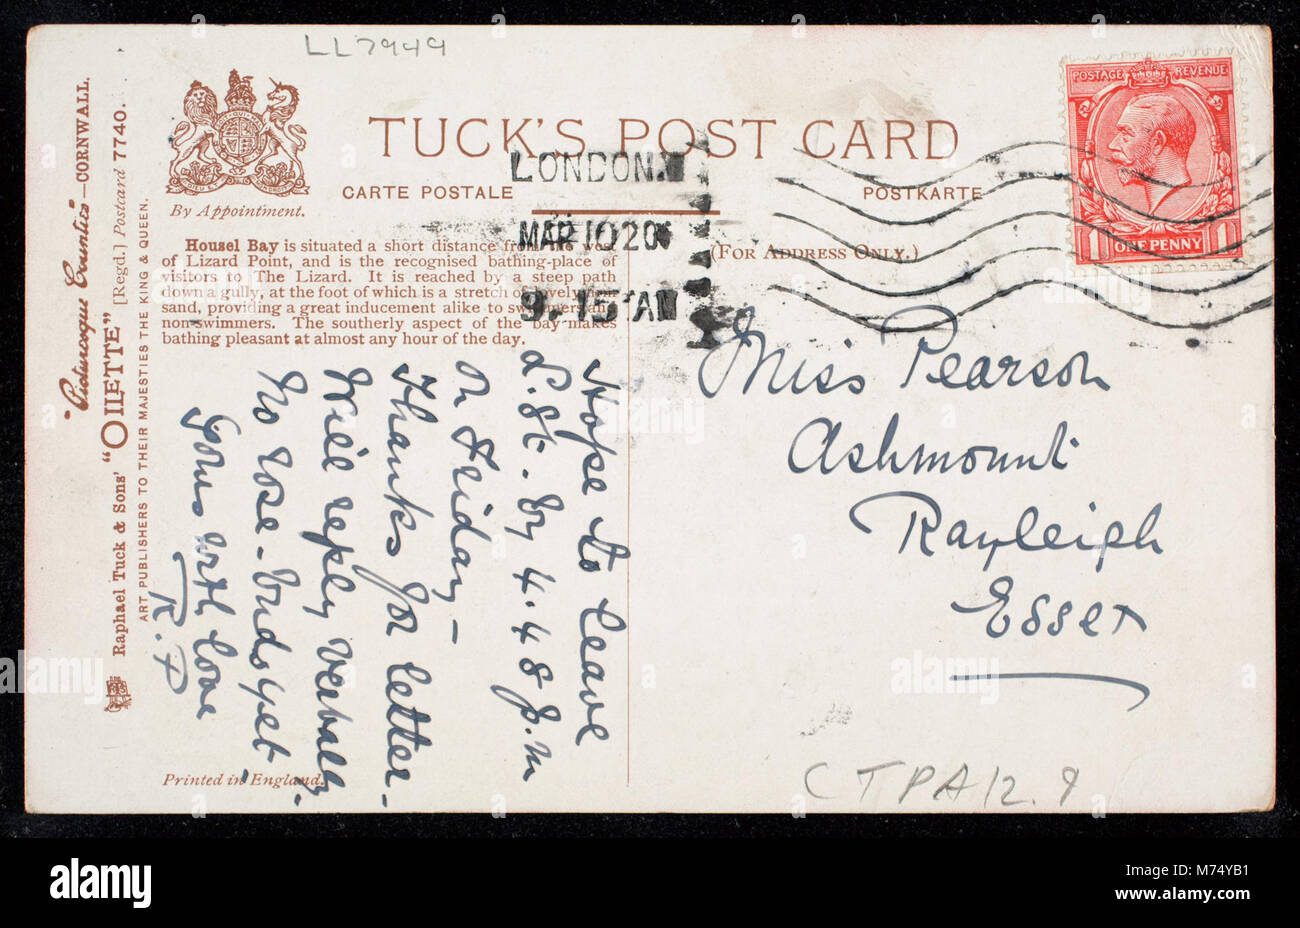 LL7949
TUCK'S POST CARD
CARTE POSTALE
POSTKARTE
By Appointment.
(FOR ADDRESS ONLY.)
POSTAGE REVENUE
1 ONE PENNY 1
LONDON.W
MAR 10 20
9.15 AM
Housel Bay is situated a short distance from the west
of Lizard Point, and is the recognised bathing-place of
visitors to The Lizard. It is reached by a steep path
down a gully, at the foot of which is a stretch of lovely
sand, providing a great inducement alike to swimmers and
non-swimmers. The southerly aspect of the bay makes
bathing pleasant at almost any hour of the day.
"Picturesque Counties"—CORNWALL.
"OILETTE" [Regd.] Postcard 7740.
Raphael Tuck & Sons'
ART PUBLISHERS TO THEIR MAJESTIES THE KING & QUEEN.
Hope to leave
L. St. by 4.48 p.m
on Friday –
Thanks for letter.
Will reply verbally.
No rose-buds yet!
Yours with love
R.P
Miss Pearson
Ashmount
Rayleigh
Essex
Printed in England.
CTPA12.9
alamy
alamy
www.alamy.com
Image ID: M74YB1